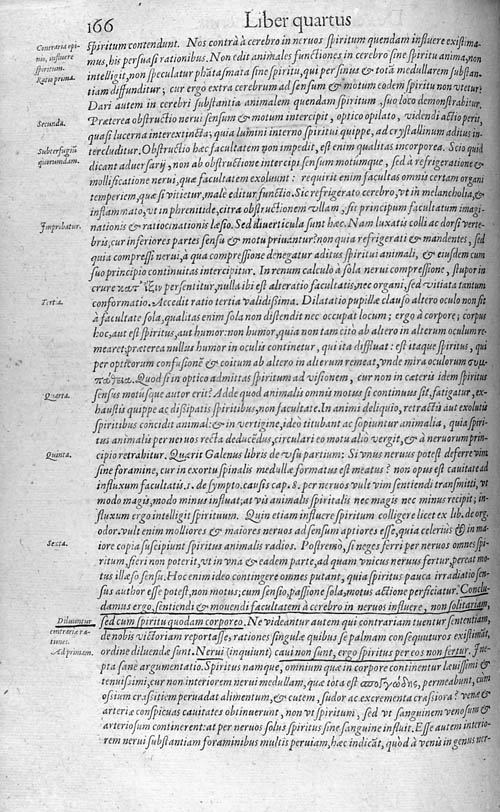 166 Liber quartus
Contraria opinio, influere spiritum.
Ratio prima.
Secunda.
Subterfugiũ quorumdam.
Improbatur.
Tertia.
Quarta.
Quinta.
Sexta.
Diluuntur contrariæ rationes.
Ad primam.
spiritum contendunt. Nos contrà à cerebro in neruos spiritum quendam influere existima-
mus, his persuasi rationibus. Non edit animales functiones in cerebro sine spiritu anima, non
intelligit, non speculatur phãtasmata sine spiritu, qui per sinus & totã medullarem substan-
tiam diffunditur; cur ergo extra cerebrum ad sensum & motum eodem spiritu non vtetur?
Dari autem in cerebri substantia animalem quendam spiritum, suo loco demonstrabitur.
Præterea obstructio nerui sensum & motum intercipit, optico opilato, videndi actio perit,
quasi lucerna interextincta; quia lumini interno spiritui quippe, ad crystallinum aditus in-
tercluditur. Obstructio hæc facultatem non impedit, est enim qualitas incorporea. Scio quid
dicant aduersarij, non ab obstructione intercipi sensum motumque, sed à refrigeratione &
mollificatione nerui, quæ facultatem exoluunt: requirit enim facultas omnis certam organi
temperiem, quæ si vitietur, malè editur functio. Sic refrigerato cerebro, vt in melancholia, &
inflammato, vt in phrenitide, citra obstructionem vllam, fit principum facultatum imagi-
nationis & ratiocinationis læsio. Sed diuerticula sunt hæc. Nam luxatis colli ac dorsi verte-
bris, cur inferiores partes sensu & motu priuantur? non quia refrigerati & madentes, sed
quia compressi nerui, à qua compressione denegatur aditus spiritui animali, & eiusdem cum
suo principio continuitas intercipitur. In renum calculo à sola nerui compressione, stupor in
crure κατ' ἴξιν persentitur, nulla ibi est alteratio facultatis, nec organi, sed vitiata tantum
conformatio. Accedit ratio tertia validissima. Dilatatio pupillæ clauso altero oculo non fit
à facultate sola, qualitas enim sola non distendit nec occupat locum; ergo à corpore; corpus
hoc, aut est spiritus, aut humor: non humor, quia non tam citò ab altero in alterum oculum re-
mearet: præterea nullus humor in oculis continetur, qui ita diffluat: est itaque spiritus, qui
per opticorum confusionẽ & coitum ab altero in alterum remeat, vnde mira oculorum συμ-
πάθεια. Quod si in optico admittas spiritum ad visionem, cur non in cæteris idem spiritus
sensus motusque autor erit? Adde quod animalis omnis motus si continuus sit, fatigatur, ex-
haustis quippe ac dissipatis spiritibus, non facultate. In animi deliquio, retractis aut exolutis
spiritibus concidit animal: & in vertigine, ideo titubant ac sopiuntur animalia, quia spiri-
tus animalis per neruos recta deducẽdus, circulari eo motu aliò vergit, & à neruorum prin-
cipio retrahitur. Quærit Galenus libris de vsu partium: Si vnus neruus potest deferre vim
sine foramine, cur in exortu spinalis medullæ formatus est meatus? non opus est cauitate ad
influxum facultatis. 1. de sympto. causis cap. 8. per neruos vult vim sentiendi transmitti, vt
modò magis, modò minus influat; at vis animalis spiritalis nec magis nec minus recipit; in-
fluxum ergo intelligit spirituum. Quin etiam influere spiritum colligere licet ex lib. de org.
odor. vult enim molliores & maiores neruos ad sensum aptiores esse, quia celeriùs & in ma-
iore copia suscipiunt spiritus animalis radios. Postremo, si neges ferri per neruos omnes spi-
ritum, fieri non poterit, vt in vna & eadem parte, ad quam vnicus neruus fertur, pereat mo-
tus illæso sensu. Hoc enim ideo contingere omnes putant, quia spiritus pauca irradiatio sen-
sus author esse potest, non motus; cum sensio, passione sola, motus actione perficiatur. Conclu-
damus ergo, sentiendi & mouendi facultatem à cerebro in neruos influere, non solitariam,
sed cum spiritu quodam corporeo. Ne videantur autem qui contrariam tuentur sententiam,
de nobis victoriam reportasse, rationes singulæ quibus se palmam consequuturos existimãt,
ordine diluendæ sunt. Nerui (inquiunt) caui non sunt, ergo spiritus per eos non fertur. Ine-
pta sanè argumentatio. Spiritus namque, omnium quæ in corpore continentur leuissimi &
tenuissimi, cur non interiorem nerui medullam, quæ tota est permeabunt, cum
ossium crassitiem peruadat alimentum, & cutem, sudor ac excrementa crassiora? venæ &
arteriæ conspicuas cauitates obtinuerunt, non vt spiritum, sed vt sanguinem venosum &
arteriosum continerent: at per neruos solus spiritus sine sanguine influit. Esse autem interio-
rem nerui substantiam foraminibus multis peruiam, hæc indicãt, quòd à venis in genus ner-